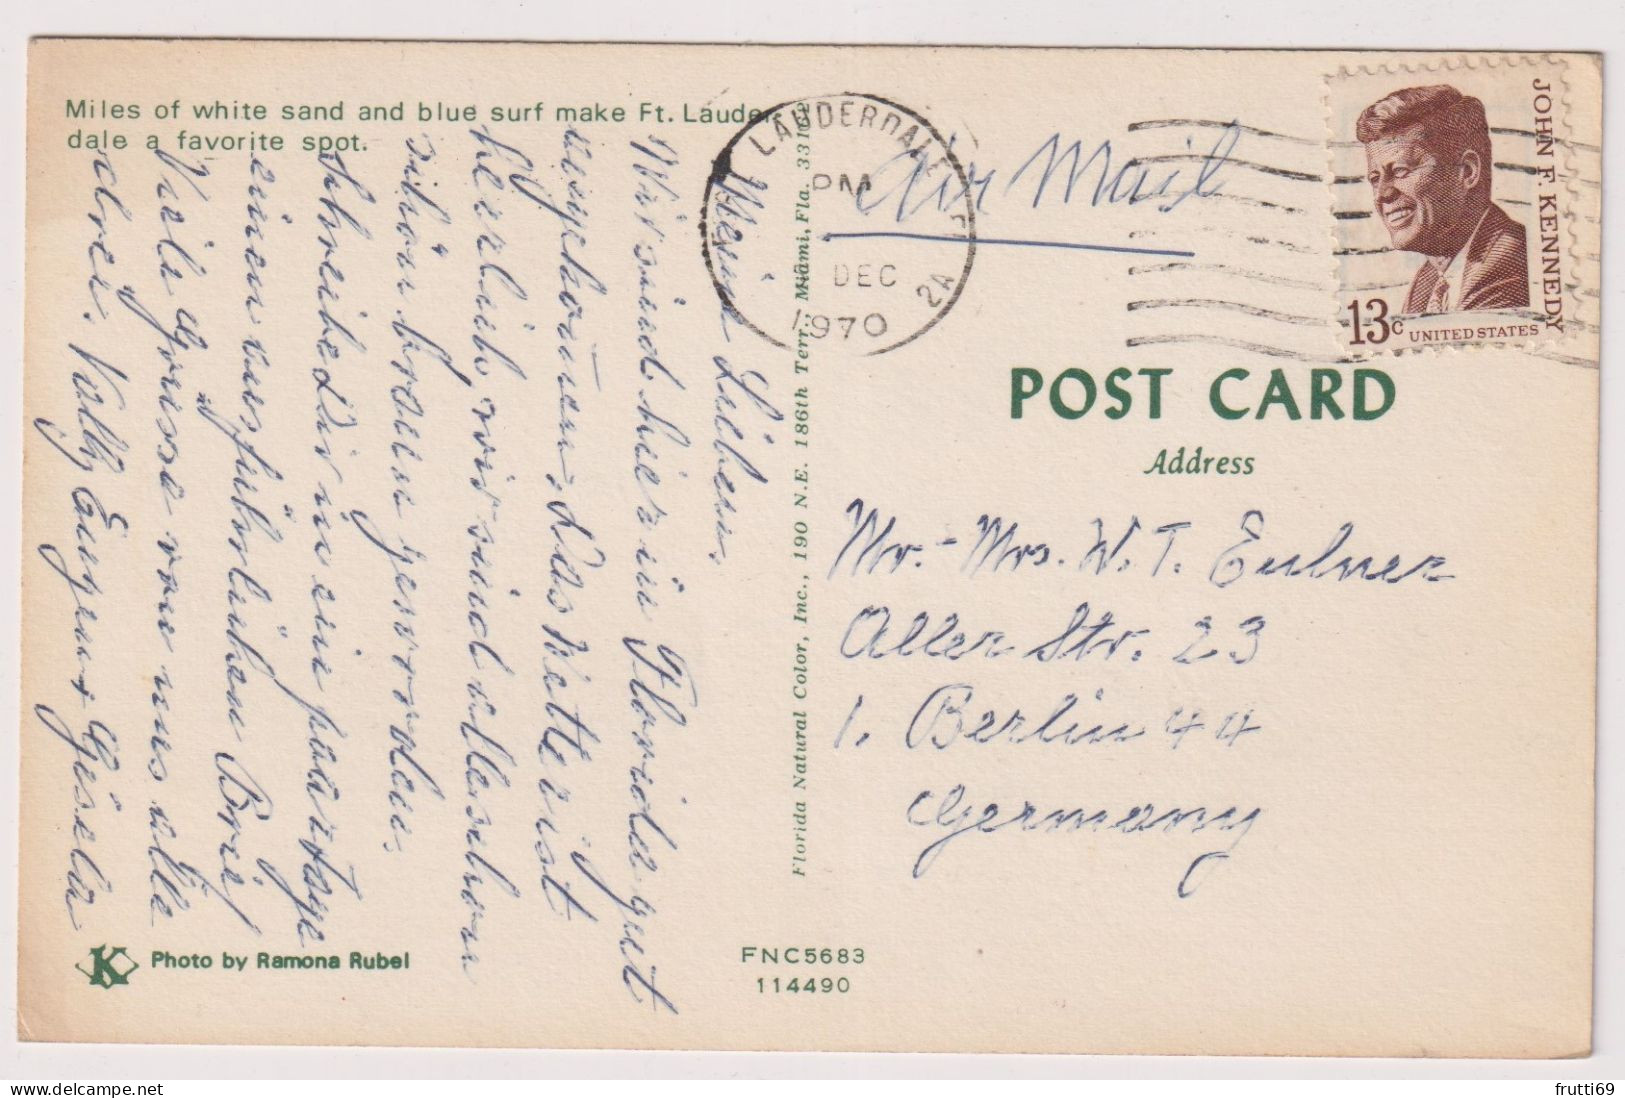 Miles of white sand and blue surf make Ft. Lauder-
dale a favorite spot.
Meine Lieben,
Wir sind hier in Florida gut
angekommen, das Wetter ist
herrlich, wir sind alle schon
schön braun geworden.
Schreibe Dir in ein paar Tage
einen ausführlichen Brief
Viele Grüsse von uns alle
Volly Gisela
Photo by Ramona Rubel
Florida Natural Color, Inc., 190 N.E. 186th Terr., Miami, Fla. 33162
FNC5683
114490
LAUDERDALE
PM
DEC
1970
Air Mail
JOHN F. KENNEDY
13c UNITED STATES
POST CARD
Address
Mr.-Mrs. W. T. Eulner
Aller Str. 23
1. Berlin 44
Germany
frutti69